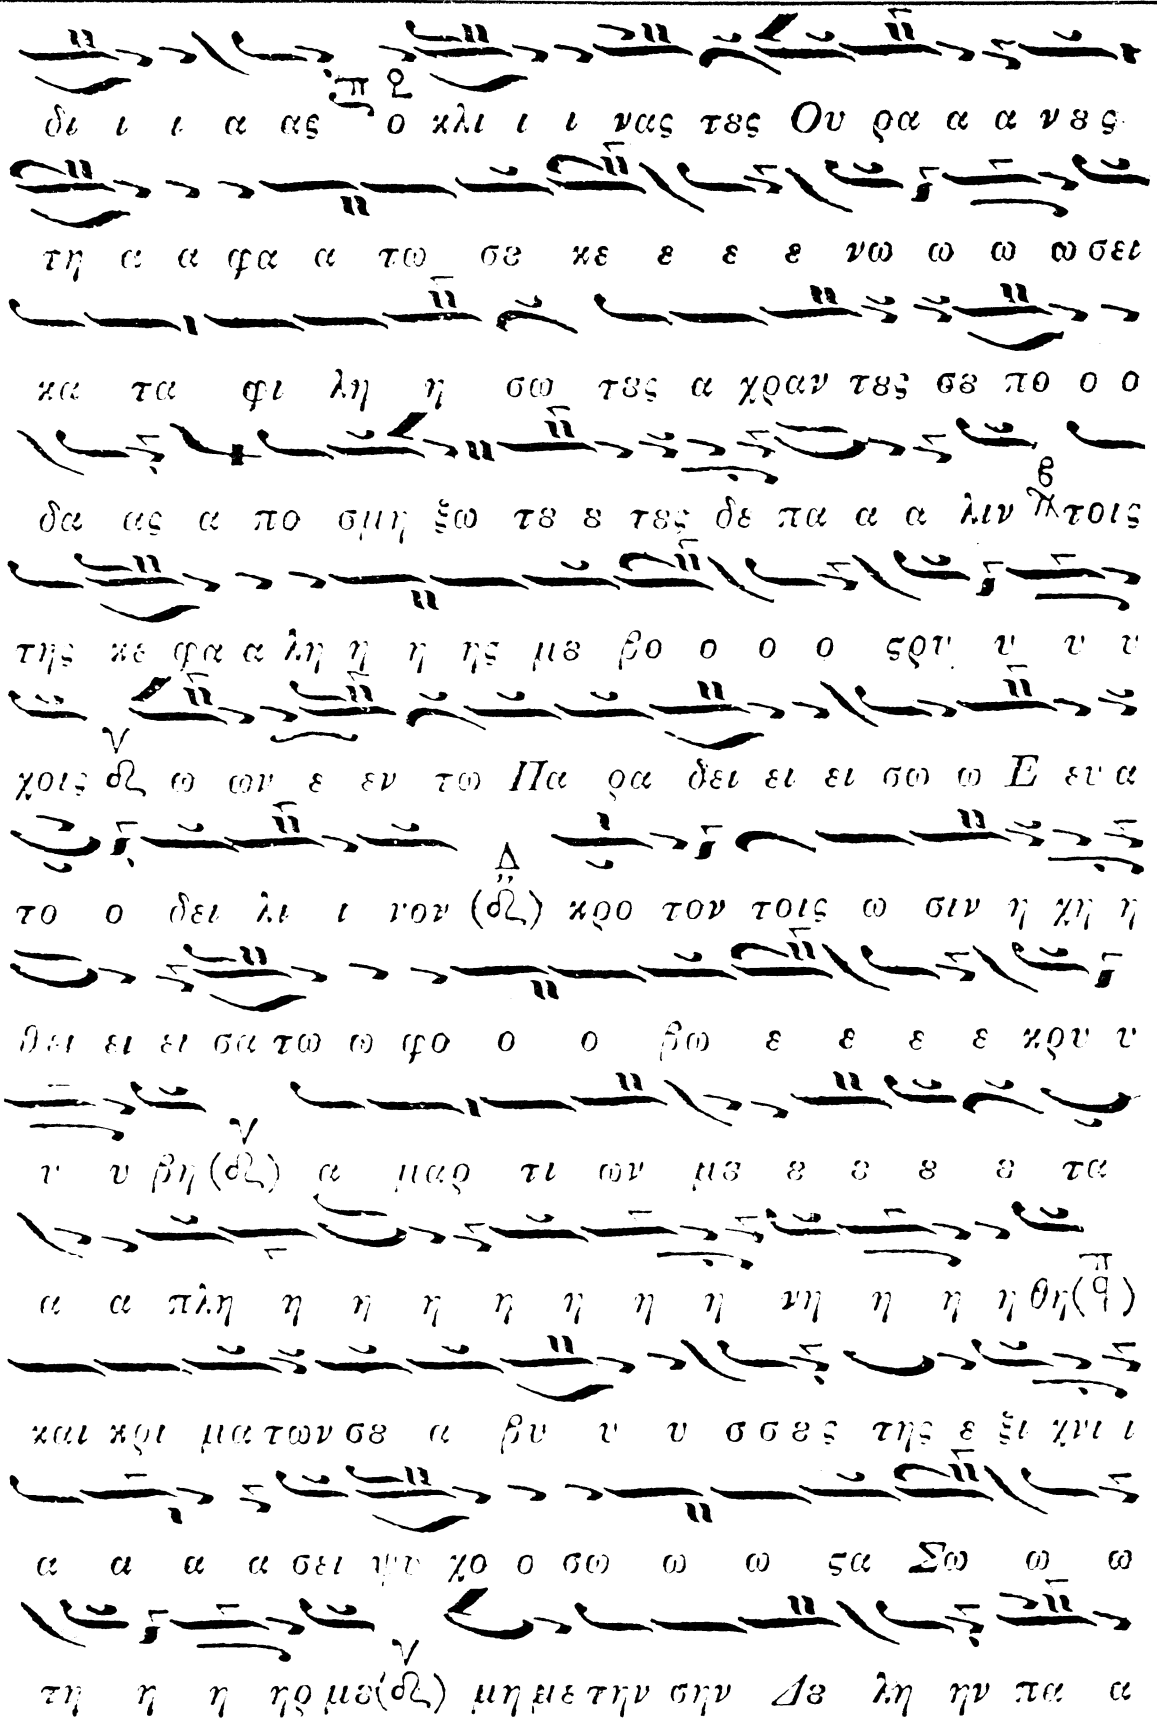 δι ι ι α ας ο κλι ι ι νας τȣς Ου ρα α α νȣς
τη α α φα α τω σȣ κε ε ε ε νω ω ω ω σει
κα τα φι λη η σω τȣς α χραν τȣς σȣ πο ο ο
δα ας α πο σμη ξω τȣ ȣ τȣς δε πα α α λιν τοις
της κε φα α λη η η ης μȣ βο ο ο ο ςρυ υ υ υ
χοις ω ων ε εν τω Πα ρα δει ει ει σω ω Ε ευ α
το ο δει λι ι νον κρο τον τοις ω σιν η χη η
θει ει ει σα τω ω φο ο ο βω ε ε ε ε κρυ υ
υ υ βη α μαρ τι ων μȣ ȣ ȣ ȣ ȣ τα
α α πλη η η η η η η η νη η η η θη
και κρι μα των σȣ α βυ υ υ σσȣς της ε ξι χνι ι
α α α α σει ψυ χο ο σω ω ω ςα Σω ω ω
τη η η ηρ μȣ μη με την σην Δȣ λη ην πα α